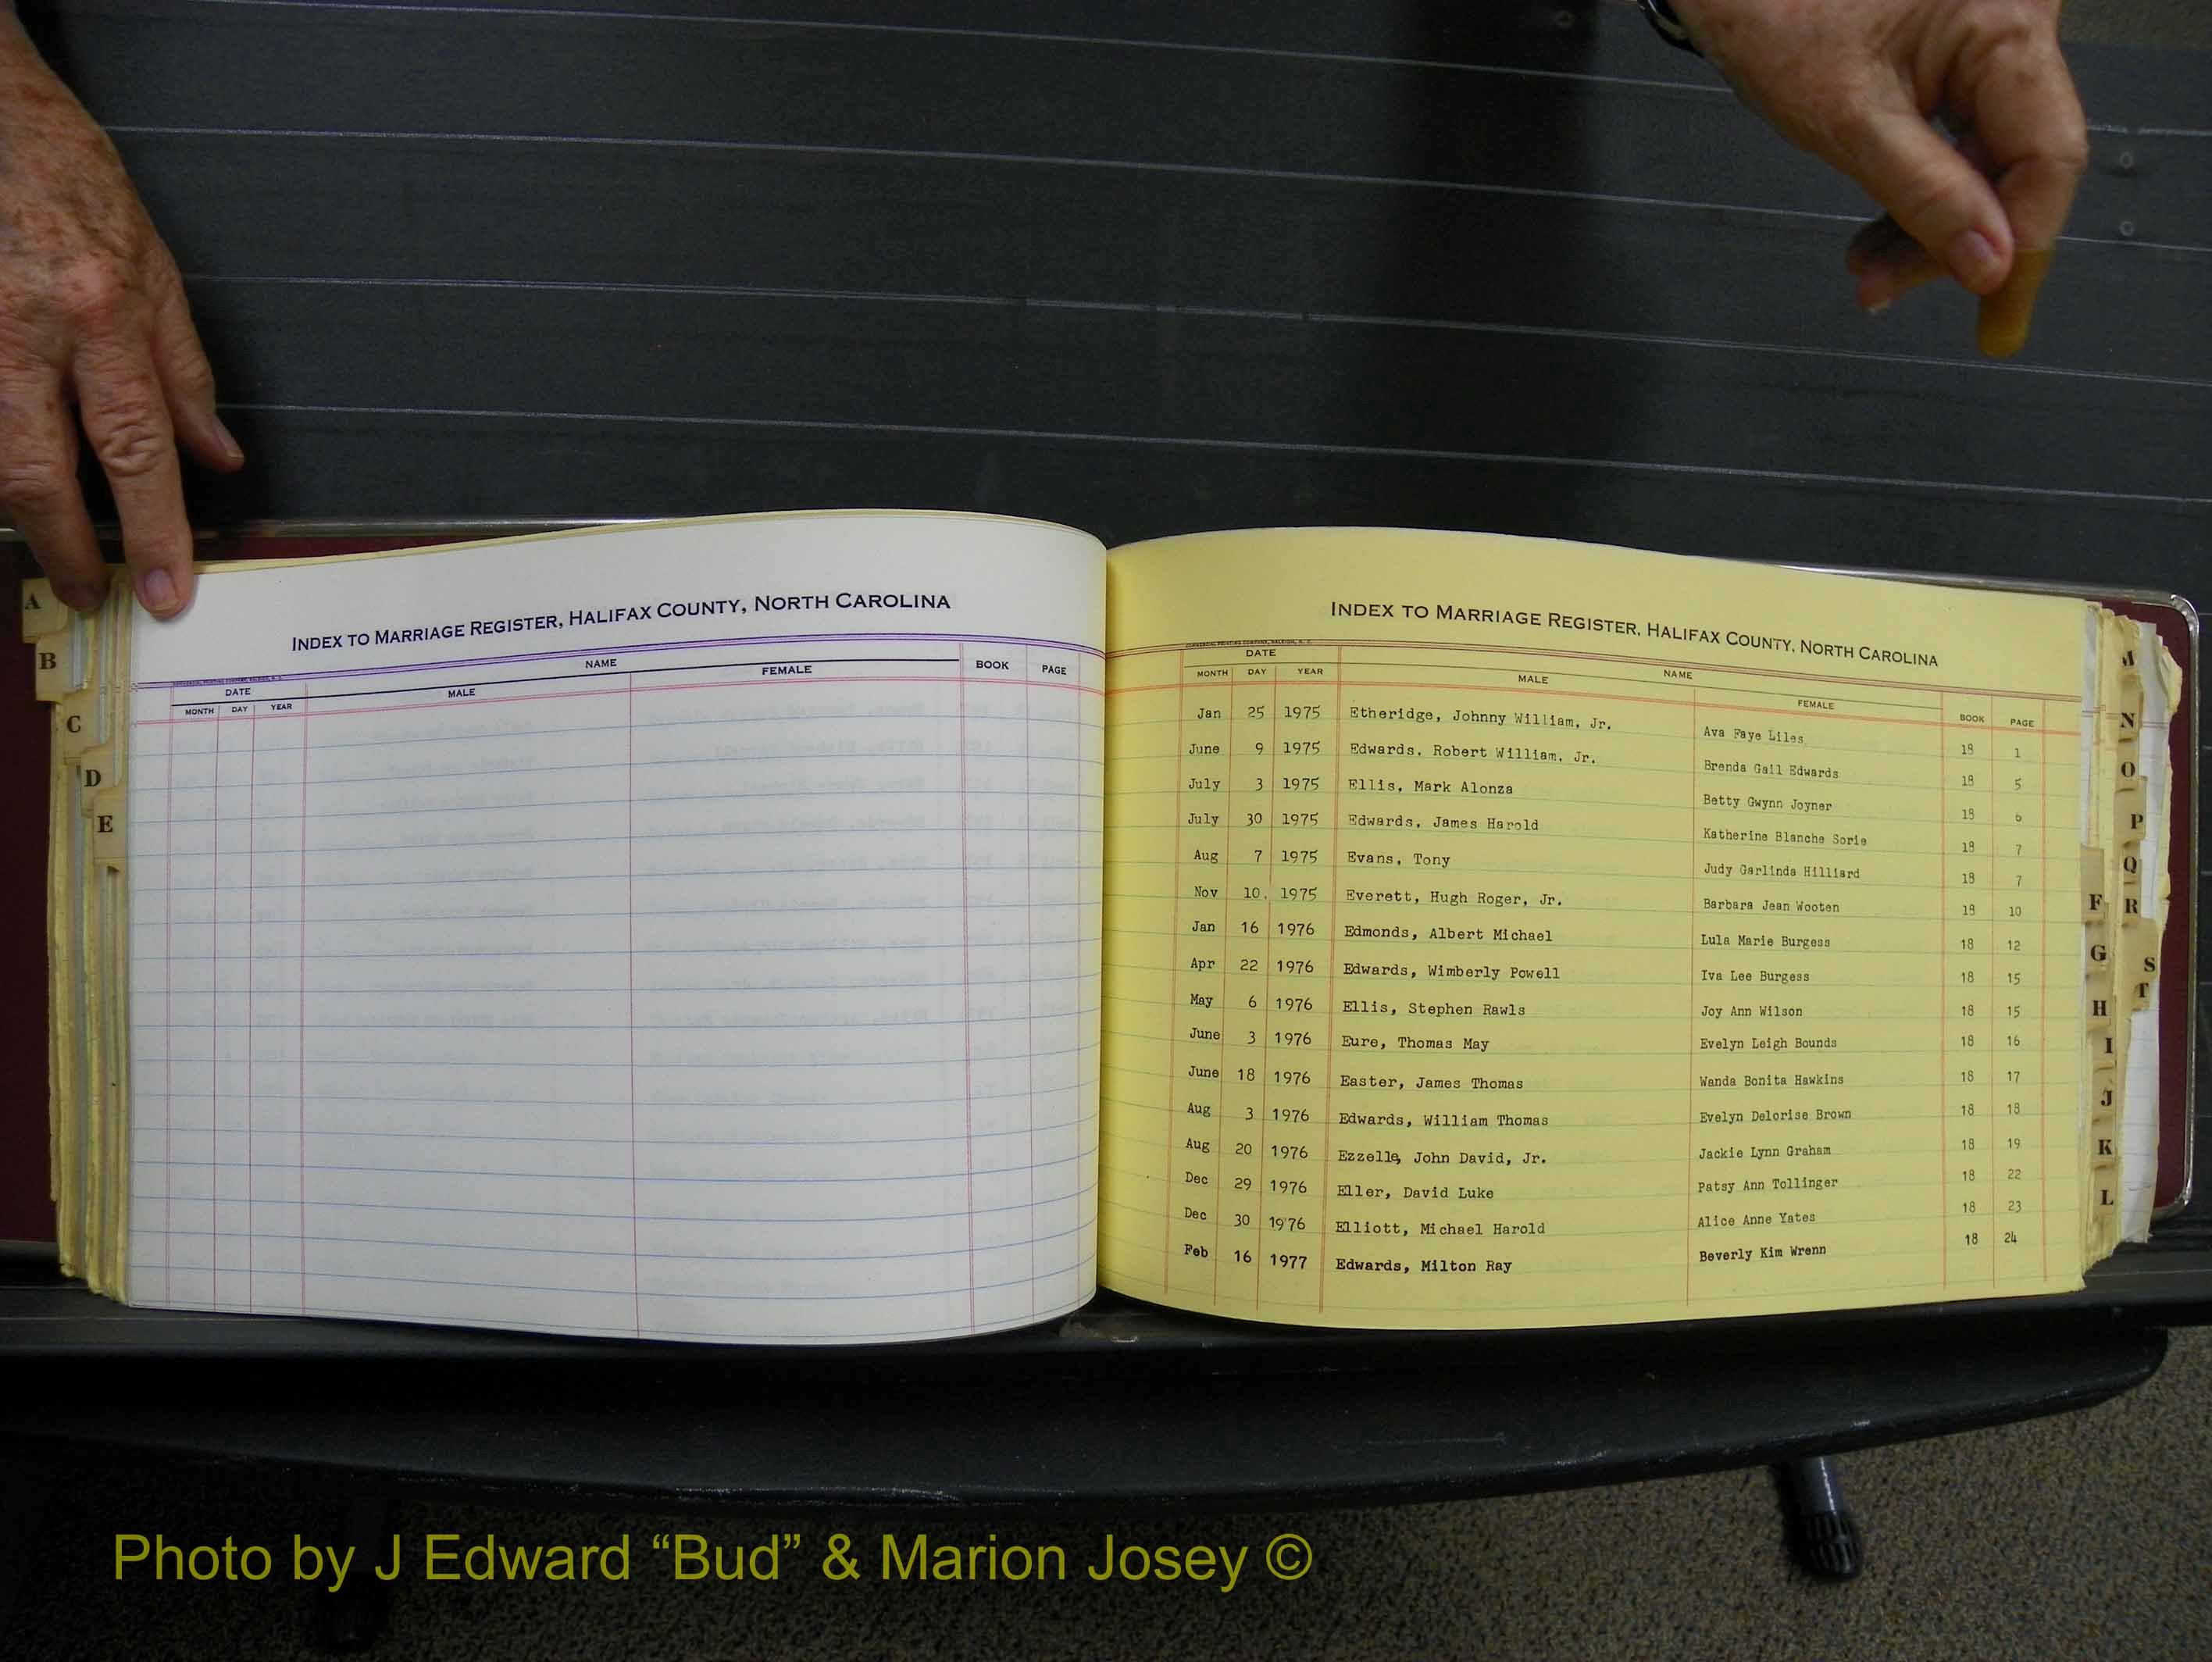 A
B
C
D
E
INDEX TO MARRIAGE REGISTER, HALIFAX COUNTY, NORTH CAROLINA
DATE NAME BOOK PAGE
MONTH DAY YEAR MALE FEMALE
INDEX TO MARRIAGE REGISTER, HALIFAX COUNTY, NORTH CAROLINA
COMMERCIAL PRINTING COMPANY, RALEIGH, N. C.
DATE NAME
MONTH DAY YEAR MALE FEMALE BOOK PAGE
Jan 25 1975 Etheridge, Johnny William, Jr. Ava Faye Liles 18 1
June 9 1975 Edwards. Robert William, Jr. Brenda Gail Edwards 18 5
July 3 1975 Ellis, Mark Alonza Betty Gwynn Joyner 18 6
July 30 1975 Edwards, James Harold Katherine Blanche Sorie 18 7
Aug 7 1975 Evans, Tony Judy Garlinda Hilliard 18 7
Nov 10. 1975 Everett, Hugh Roger, Jr. Barbara Jean Wooten 18 10
Jan 16 1976 Edmonds, Albert Michael Lula Marie Burgess 18 12
Apr 22 1976 Edwards, Wimberly Powell Iva Lee Burgess 18 15
May 6 1976 Ellis, Stephen Rawls Joy Ann Wilson 18 15
June 3 1976 Eure, Thomas May Evelyn Leigh Bounds 18 16
June 18 1976 Easter, James Thomas Wanda Bonita Hawkins 18 17
Aug 3 1976 Edwards, William Thomas Evelyn Delorise Brown 18 18
Aug 20 1976 Ezzelle, John David, Jr. Jackie Lynn Graham 18 19
Dec 29 1976 Eller, David Luke Patsy Ann Tollinger 18 22
Dec 30 1976 Elliott, Michael Harold Alice Anne Yates 18 23
Feb 16 1977 Edwards, Milton Ray Beverly Kim Wrenn 18 24
F
G
H
I
J
K
L
M
N
O
P
Q
R
S
T
Photo by J Edward “Bud” & Marion Josey ©